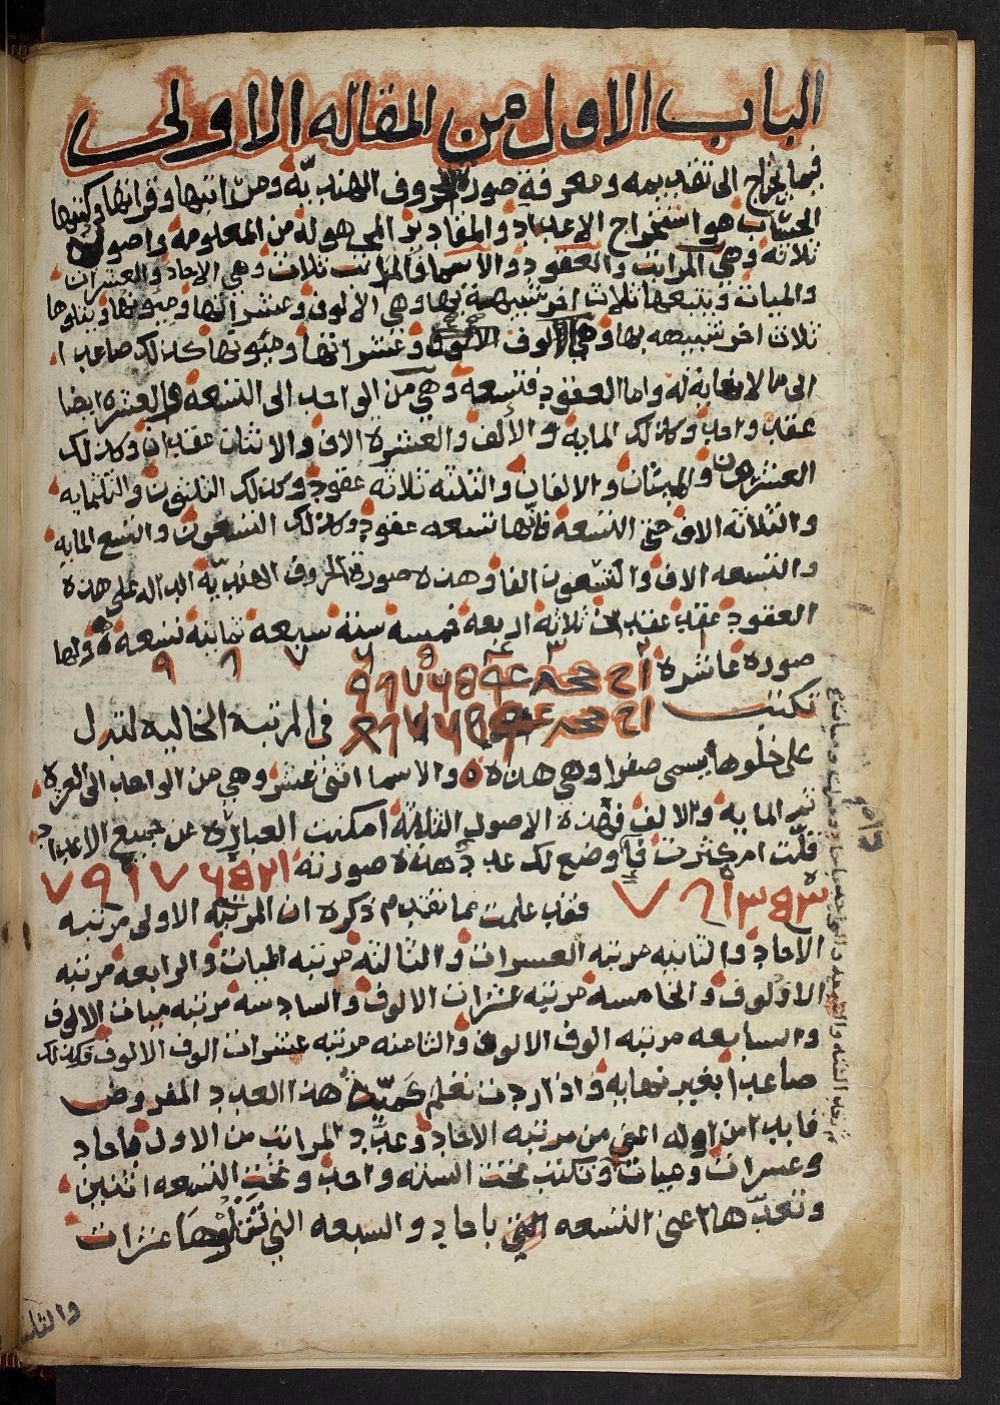 الباب الاول من المقاله الاولى
فيما يحتاج الى تقديمه ومعرفة صورة الحروف الهندية ومراتبها وقرائها وكتبها
الحساب هو استخراج الاعداد والمقادير المجهوله من المعلومه واصوله
ثلاثه وهي المراتب والعقود والاسما والمراتب ثلاث وهي الاحاد والعشرات
والميات ويتبعها ثلاث اخر شبيهة بها وهي الالوف وعشراتها وميونها ويتلوها
ثلاث اخر شبيهه بها وهي الوف الالوف وعشراتها وميونها كذلك صاعدا
الى ما لا نهاية له واما العقود فتسعه وهي من الواحد الى التسعه والعشره ايضا
عقد واحد وكذلك المايه والالف والعشرة الاف والاثنان عقدان وكذلك
العشرون والميتان والالفان والثلثه ثلاثه عقود وكذلك الثلثون والثلثمايه
والثلاثة الاف حتى التسعه فانها تسعه عقود وكذلك التسعون والتسع المايه
والتسعه الاف والتسعون الفا وهذه صورة الحروف الهندية الداله على هذه
العقود عقد عقد ثلاثه اربعه خمسه سته سبعه ثمانيه تسعه ولها
صوره عاشرة
تكتب في المرتبة الخاليه لتدل
على خلوها يسمى صفرا وهي هذه ٥ والاسما اثنى عشر وهي من الواحد الى العشرة
ثم المايه والالف فهذه الاصول الثلاثة امكنت العبارة عن جميع الاعداد
قلت ام كثرت فاوضع لك عدد هذه صورته
فقد علمت مما تقدم ذكره ان المرتبه الاولى مرتبه
الاحاد والثانيه مرتبه العسرات والثالثه مرتبه الميات والرابعه مرتبه
الالوف والخامسه مرتبه عشرات الالوف والسادسه مرتبه ميات الالوف
والسابعه مرتبه الوف الالوف والثامنه مرتبه عشرات الوف الالوف فكذلك
صاعدا بغير نهايه واذا اردت تعلم كمية هذا العدد المفروض
فابدا من اوله اعني من مرتبه الاحاد وعدد المراتب من الاول باحاد
وعسرات وميات وتكتب تحت السته واحد وتحت التسعه اثنين
وتعدها اعني التسعه التي باحاد والسبعه التي تتلوها عشرات